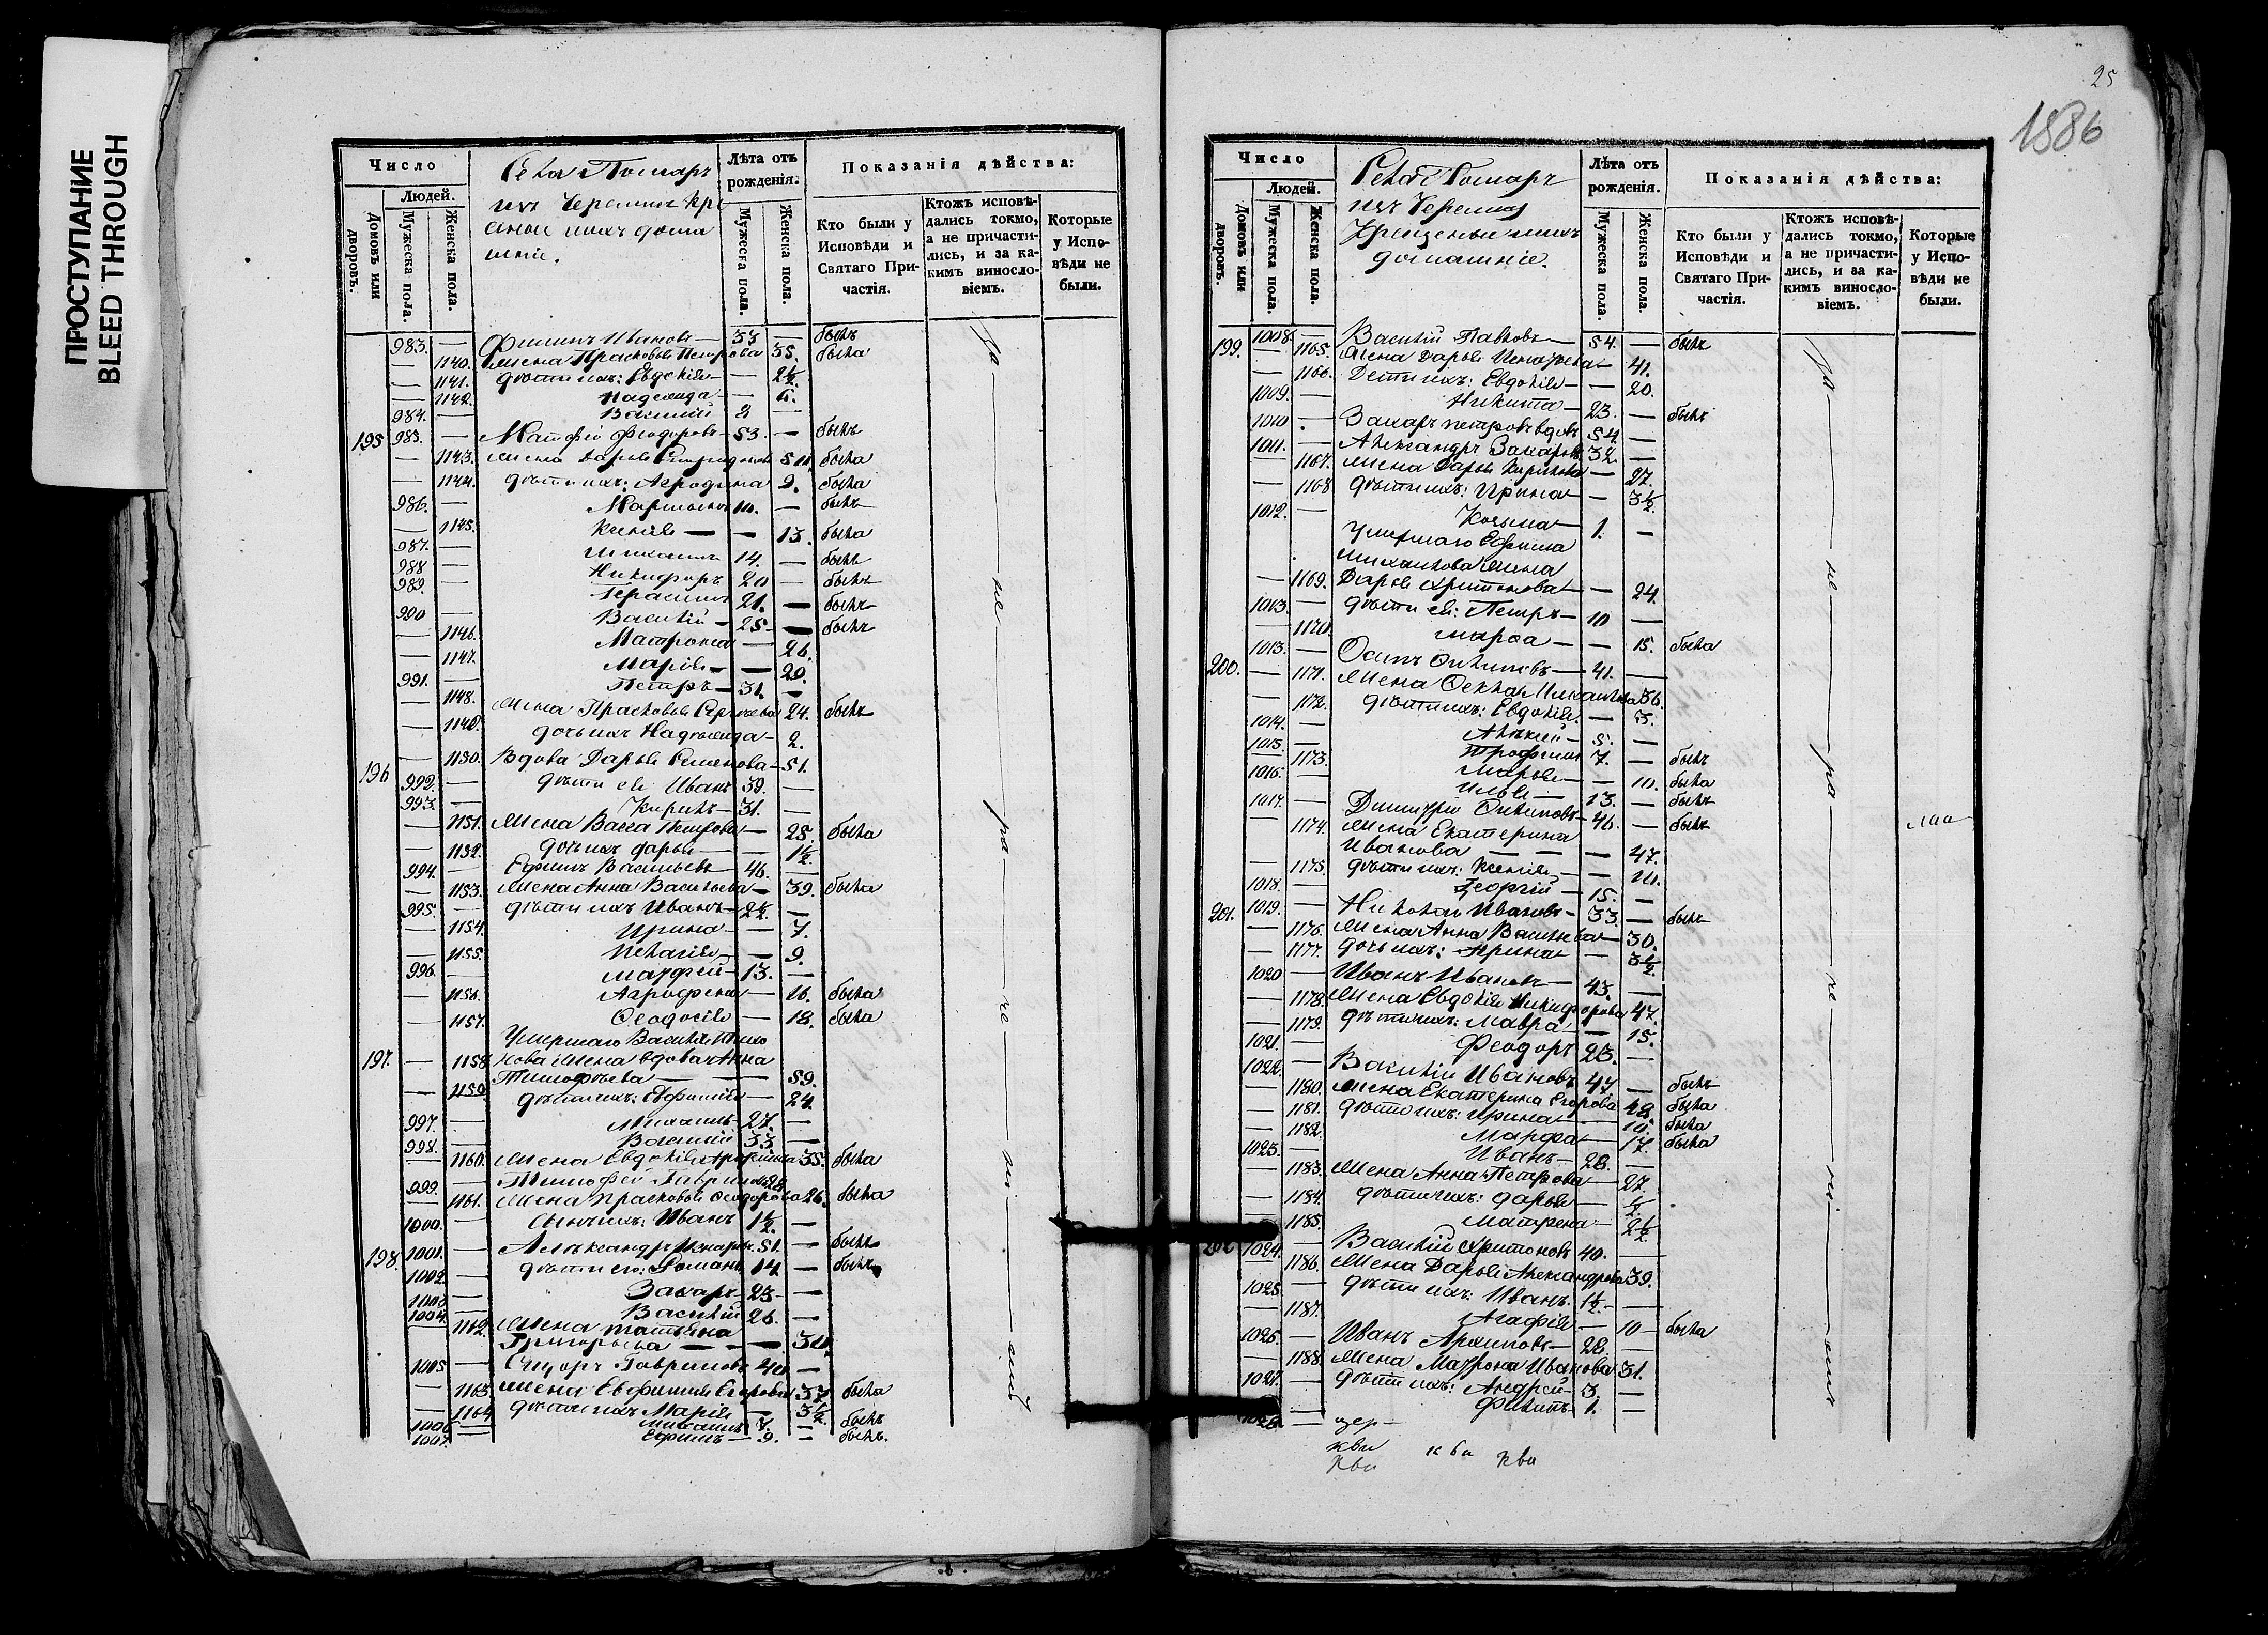 ПРОСТУПАНИЕ
BLEED THROUGH
25
1886
Число
Людей.
Домовъ или дворовъ.
Мужеска пола.
Женска пола.
Села Помаръ
изъ Черемисъ кре
домаш
ніе.
Лѣта отъ рожденія.
Мужеска пола.
Женска пола.
Показанія дѣйства:
Кто были у Исповѣди и Святаго Причастія.
Ктожъ исповѣдались токмо, а не причастились, и за какимъ винословіемъ.
Которые у Исповѣди не были.
983. — Филипъ Ивановъ — 33 — былъ
— 1140. Жена Прасковья Петрова 35. была
— 1141. дѣти ихъ: Евдокія — — 2½.
— 1142. Надежда —
984. — Василій 8 —
195 985. — Матфей Феодоровъ — 53. — былъ
— 1143. Жена Дарья была
— 1144. дѣти ихъ: 9. была
986. — — былъ
— 1145. Ксенія — — 13. была
987. — Михаилъ 14. — былъ
988 — Никифоръ 20 — былъ
989. — Герасимъ 21. — былъ
990 — Василій — 25 — былъ
— 1146. Матрона — 26.
— 1147. Марія — — 29.
991. — Петръ — 31. —
— 1148. Жена Прасковья Сергѣева 24. былъ
— 1149. дочь ихъ Надежда — 2.
196 — 1150. Вдова Дарья Семенова — 51.
992. — дѣти ея Иванъ 39. —
993. — Кирилъ — 31. —
— 1151. Жена Васса Петрова — 25. была
— 1152. дочь ихъ Дарья — — 1½.
994. — Ефимъ Васильевъ 46. —
— 1153. Жена Анна Васильева — 39. была
995. — дѣти ихъ Иванъ — 2½. —
— 1154. Ирина — — 7.
— 1155. Пелагія — — 9.
996. — Матфей — 13. —
— 1156. Агрофена — 16. была
— 1157. Феодосія — 18. была
Умершаго Василія
197. — 1158 жена вдова Анна
Тимофѣева — — 59.
— 1159 дѣти ихъ: Евфимія — 24.
997. — Михаилъ — 27. —
998. — Василій 33 —
— 1160. Жена Евдокія 35. была
999. — Тимофей Гаврил. 28
— 1161. Жена Прасковья Феодорова 26. была
1000. — сынъ ихъ: Иванъ 1½. —
198. 1001. — Александръ 51. — былъ
1002. — дѣти его: Романъ 14. — былъ
1003 — Захаръ — 23 —
1004. — Василій 26. —
— 1162. Жена Татьяна
Григорьева — — —
1005 — Сидоръ Гавриловъ 40 —
— 1163 Жена Евфимія Егорова 37 была
— 1164 дѣти ихъ Марія — 3½.
1006 — Михаилъ 7. — былъ
1007. — Ефимъ — 9. — былъ.
Число
Людей.
Домовъ или дворовъ.
Мужеска пола.
Женска пола.
Села Помаръ
изъ Черемисъ
Крещеныи ихъ
домашніе.
Лѣта отъ рожденія.
Мужеска пола.
Женска пола.
Показанія дѣйства:
Кто были у Исповѣди и Святаго Причастія.
Ктожъ исповѣдались токмо, а не причастились, и за какимъ винословіемъ.
Которые у Исповѣди не были.
199. 1008. — Василій Павловъ — 54. — былъ
— 1165. Жена Дарья — 41.
— 1166. Дети ихъ: Евдокія — — 20.
1009. — Никита — 23. — былъ
1010 . Захаръ Петровъ вдовъ 54. —
1011. — Александръ Захаровъ 32. —
— 1167. Жена Дарья Кирилова — 27.
— 1168 дѣти ихъ: Ирина — — 3½.
1012. — Козьма — 1. —
Умершаго Ефима
Михайлова жена
— 1169. Дарья Харитонова — — 24.
1013. — дѣти ея: Петръ — 10 —
— 1170. Марфа — — 15. была
200. 1013. — Осипъ — 41. —
— 1171. Жена Фекла 36.
— 1172. дѣти ихъ: Евдокія — 3.
1014. — 5. —
1015. — Трофимъ 7. — былъ
— 1173. Марья — — 10. была
1016. — Илья — 13. — былъ
1017. — Димитрій — 46. — былъ
— 1174. Жена Екатерина
Иванова — — — 47.
— 1175. дѣти ихъ: Ксенія — —
1018. — Георгій — 15. —
201. 1019. — Николай Ивановъ — 33. — былъ
— 1176. Жена Анна Васильева — 30.
— 1177. дочь ихъ: Ирина — 3½.
1020 — Иванъ Ивановъ — 43. —
— 1178. Жена Евдокія Никифорова 47.
— 1179. дѣти ихъ: Мавра — — 15.
1021. — Феодоръ 23. —
1022. — Василій Ивановъ 47. — былъ
— 1180. Жена Екатерина Егорова 48. была
— 1181. дѣти ихъ: Ирина — 10. была
— 1182. Марфа — 17. была
1023. — Иванъ — 28. —
— 1183. Жена Анна Петрова — 27
— 1184. дѣти ихъ: Дарья — ½.
— 1185. Матрена — 2½.
202 1024. — Василій Харитоновъ 40. —
— 1186. Жена Дарья Александрова 39.
1025. — дѣти ихъ: Иванъ. 1½. —
— 1187. Агафія — 10 — была
1026. — Иванъ Архиповъ — 28. —
— 1188. Жена Матрона Иванова 31.
1027. — дѣти ихъ: Андрей — 3 —
1028. — Филипъ — 1. —
цер—
кви
кви кви кви